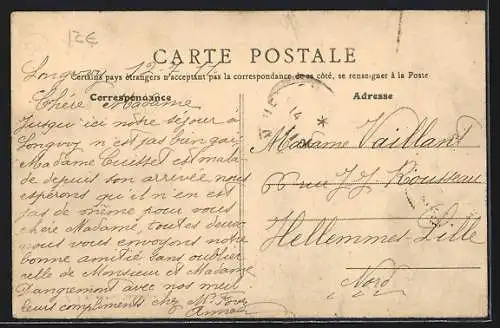 12€
CARTE POSTALE
Longwy 12-7-11
Certains pays étrangers n'acceptant pas la correspondance de ce côté, se renseigner à la Poste
Correspondance
Adresse
Chère Madame
Jusqu'ici notre séjour à
Longwy n'est pas bien gai
Madame est mala
de depuis son arrivée nous
espérons qu'il n'en est
pas de même pour vous
chère Madame, toutes deux
nous vous envoyons notre
bonne amitié sans oublier
celle de Monsieur et Madame
Dangremont avec nos meil
leurs compliments chez Mr
Anna
14
Madame Vaillant
rue J J Rousseau
Hellemmes-Lille
Nord